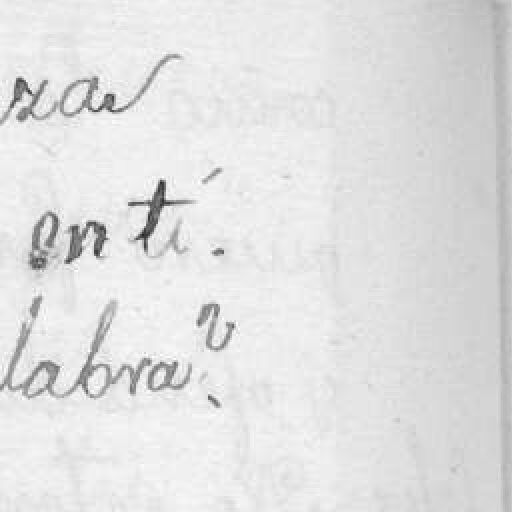 za
en tí.
labra?